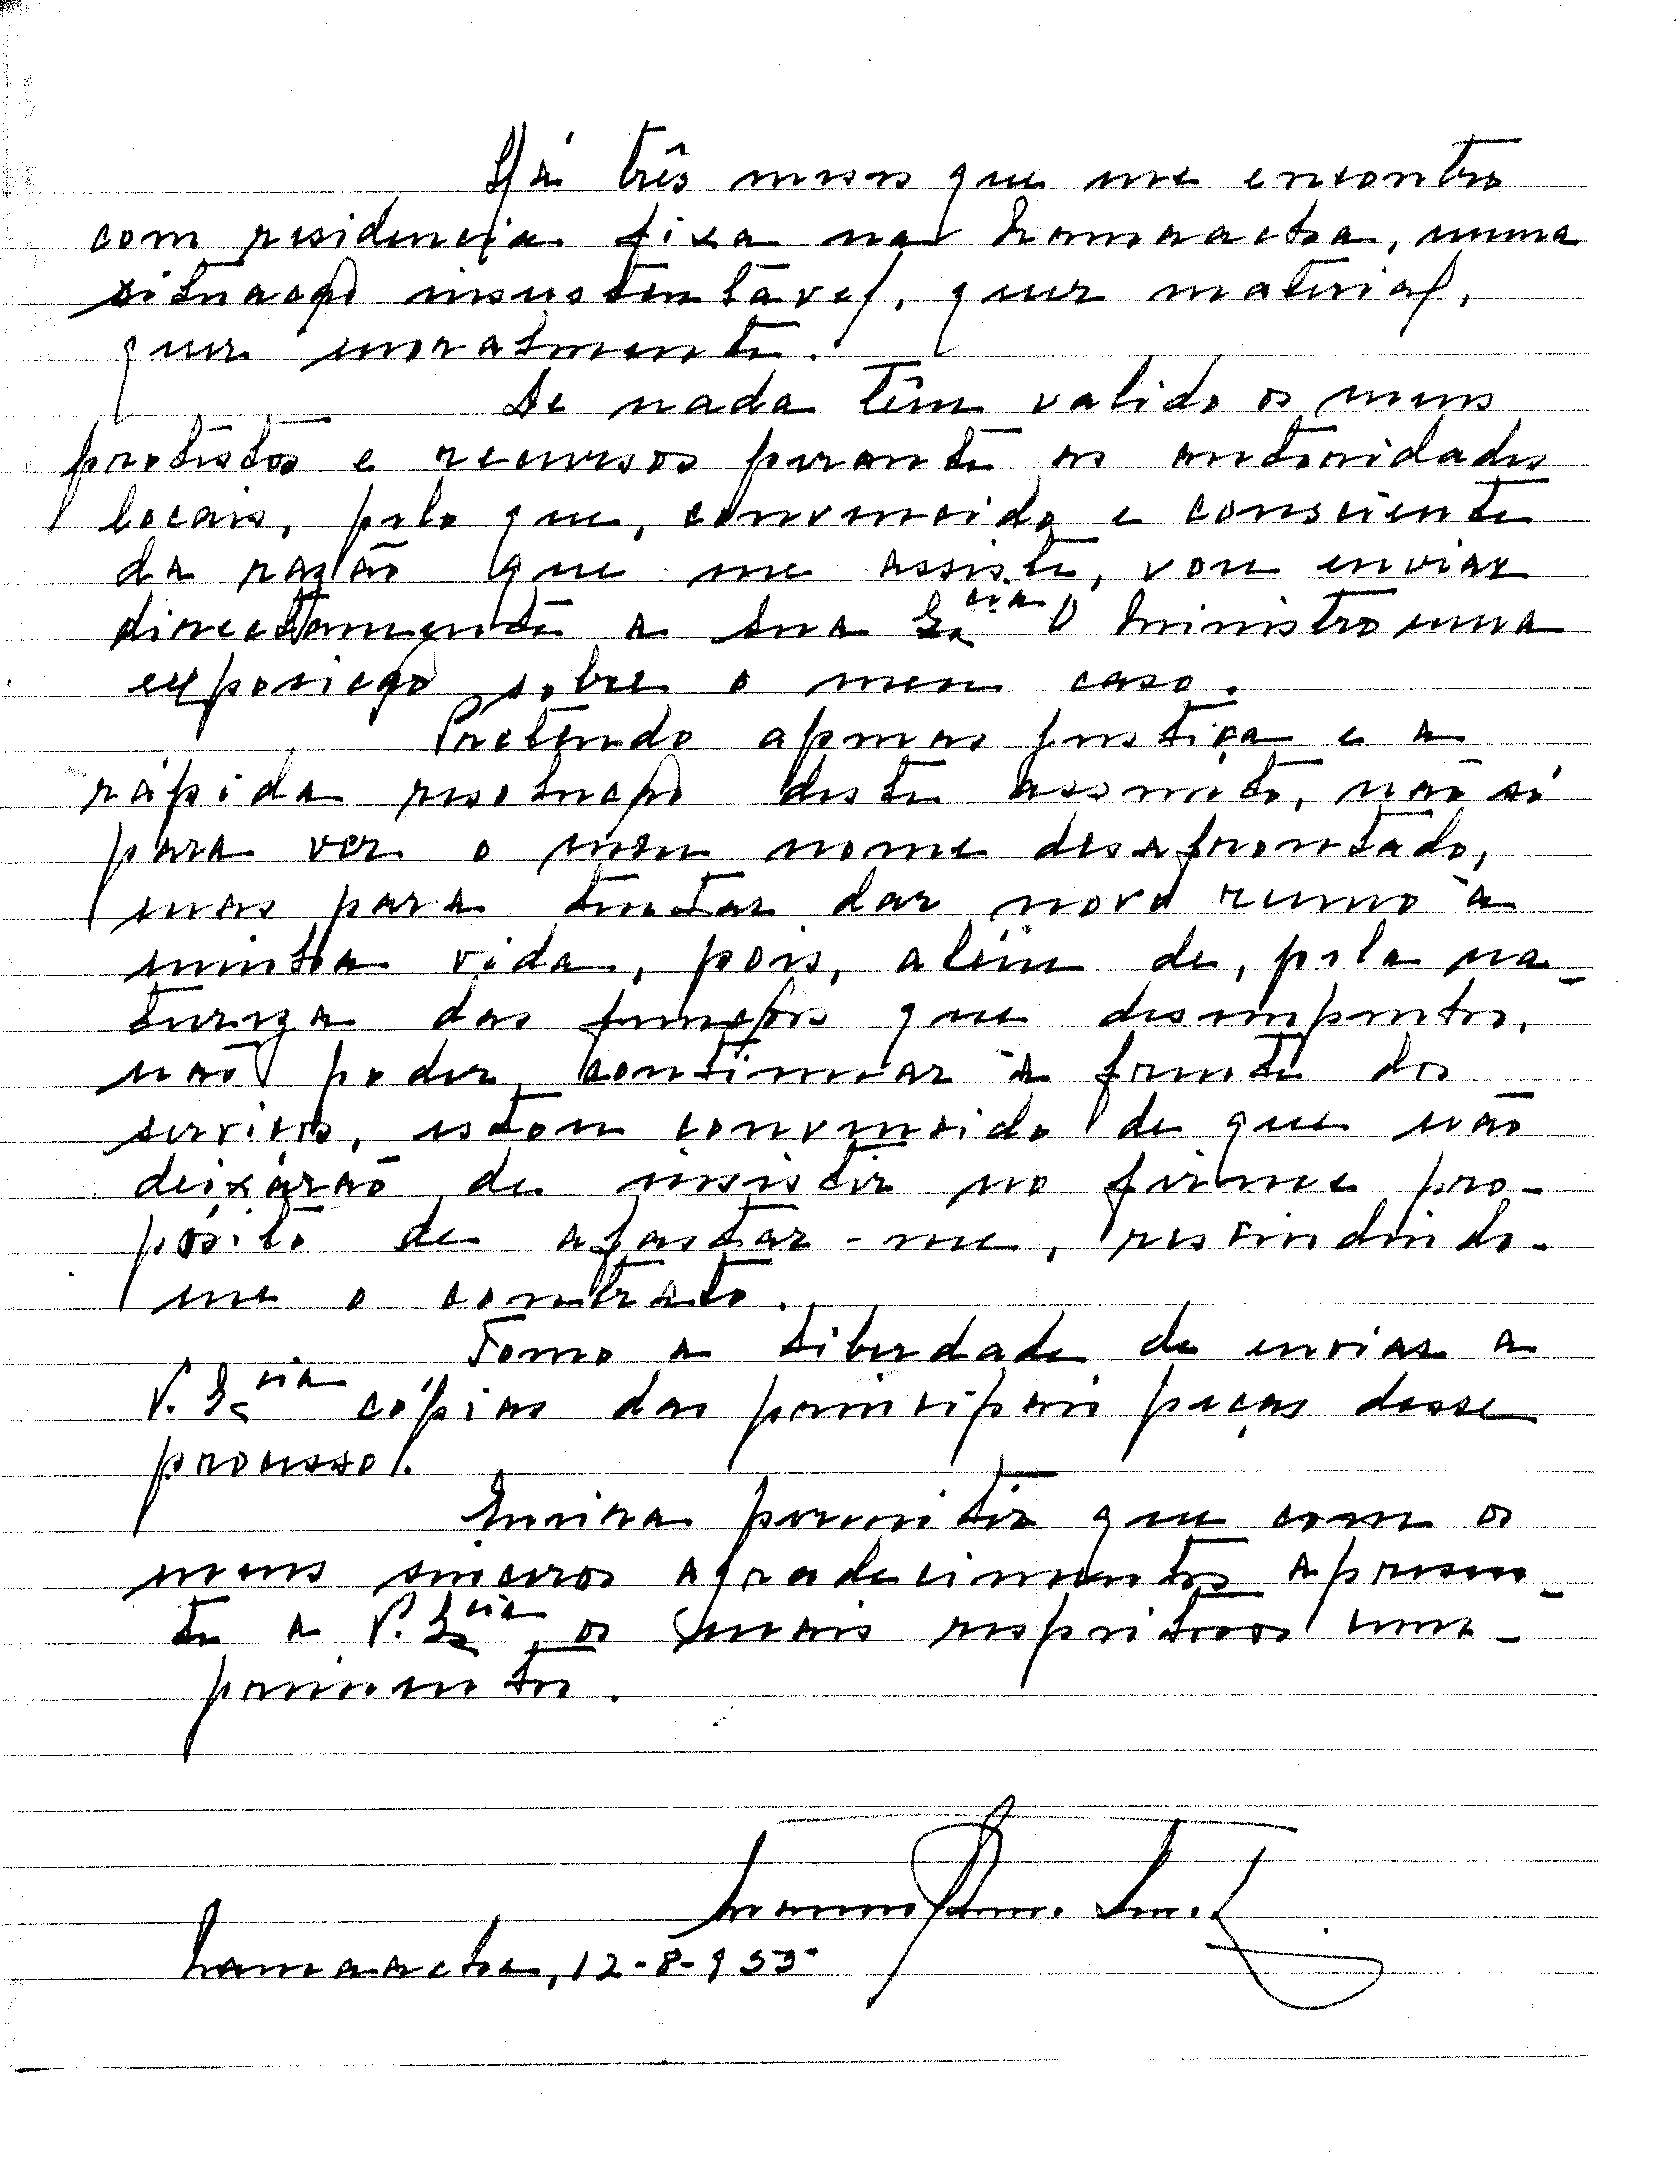 Há três meses que me encontro
com residencia fixa na Namaacha, numa
situação insustentavel, quer material,
quer moralmente.
De nada têm valido os meus
protestos e recursos perante as autoridades
locais, pelo que, convencido e consciente
da razão que me assiste, vou enviar
directamente a Sua Exª O Ministro uma
exposição sobre o meu caso.
Pretendo apenas justiça e a
rápida resolução deste assunto, não só
para ver o meu nome desafrontado,
mas para tentar dar novo rumo à
minha vida, pois, além de, pela na-
tureza das funções que desempenho,
não poder continuar à frente dos
serviços, estou convencido de que não
deixarão de insistir no firme pro-
pósito de afastar-me, rescindindo-
me o contrato.
Tomo a liberdade de enviar a
V. Excia cópias das principais peças desse
processo.
Queira permitir que com os
meus sinceros agradecimentos apresen-
te a V. Excia, os mais respeitosos cum-
primentos.
Namaacha, 12-8-955